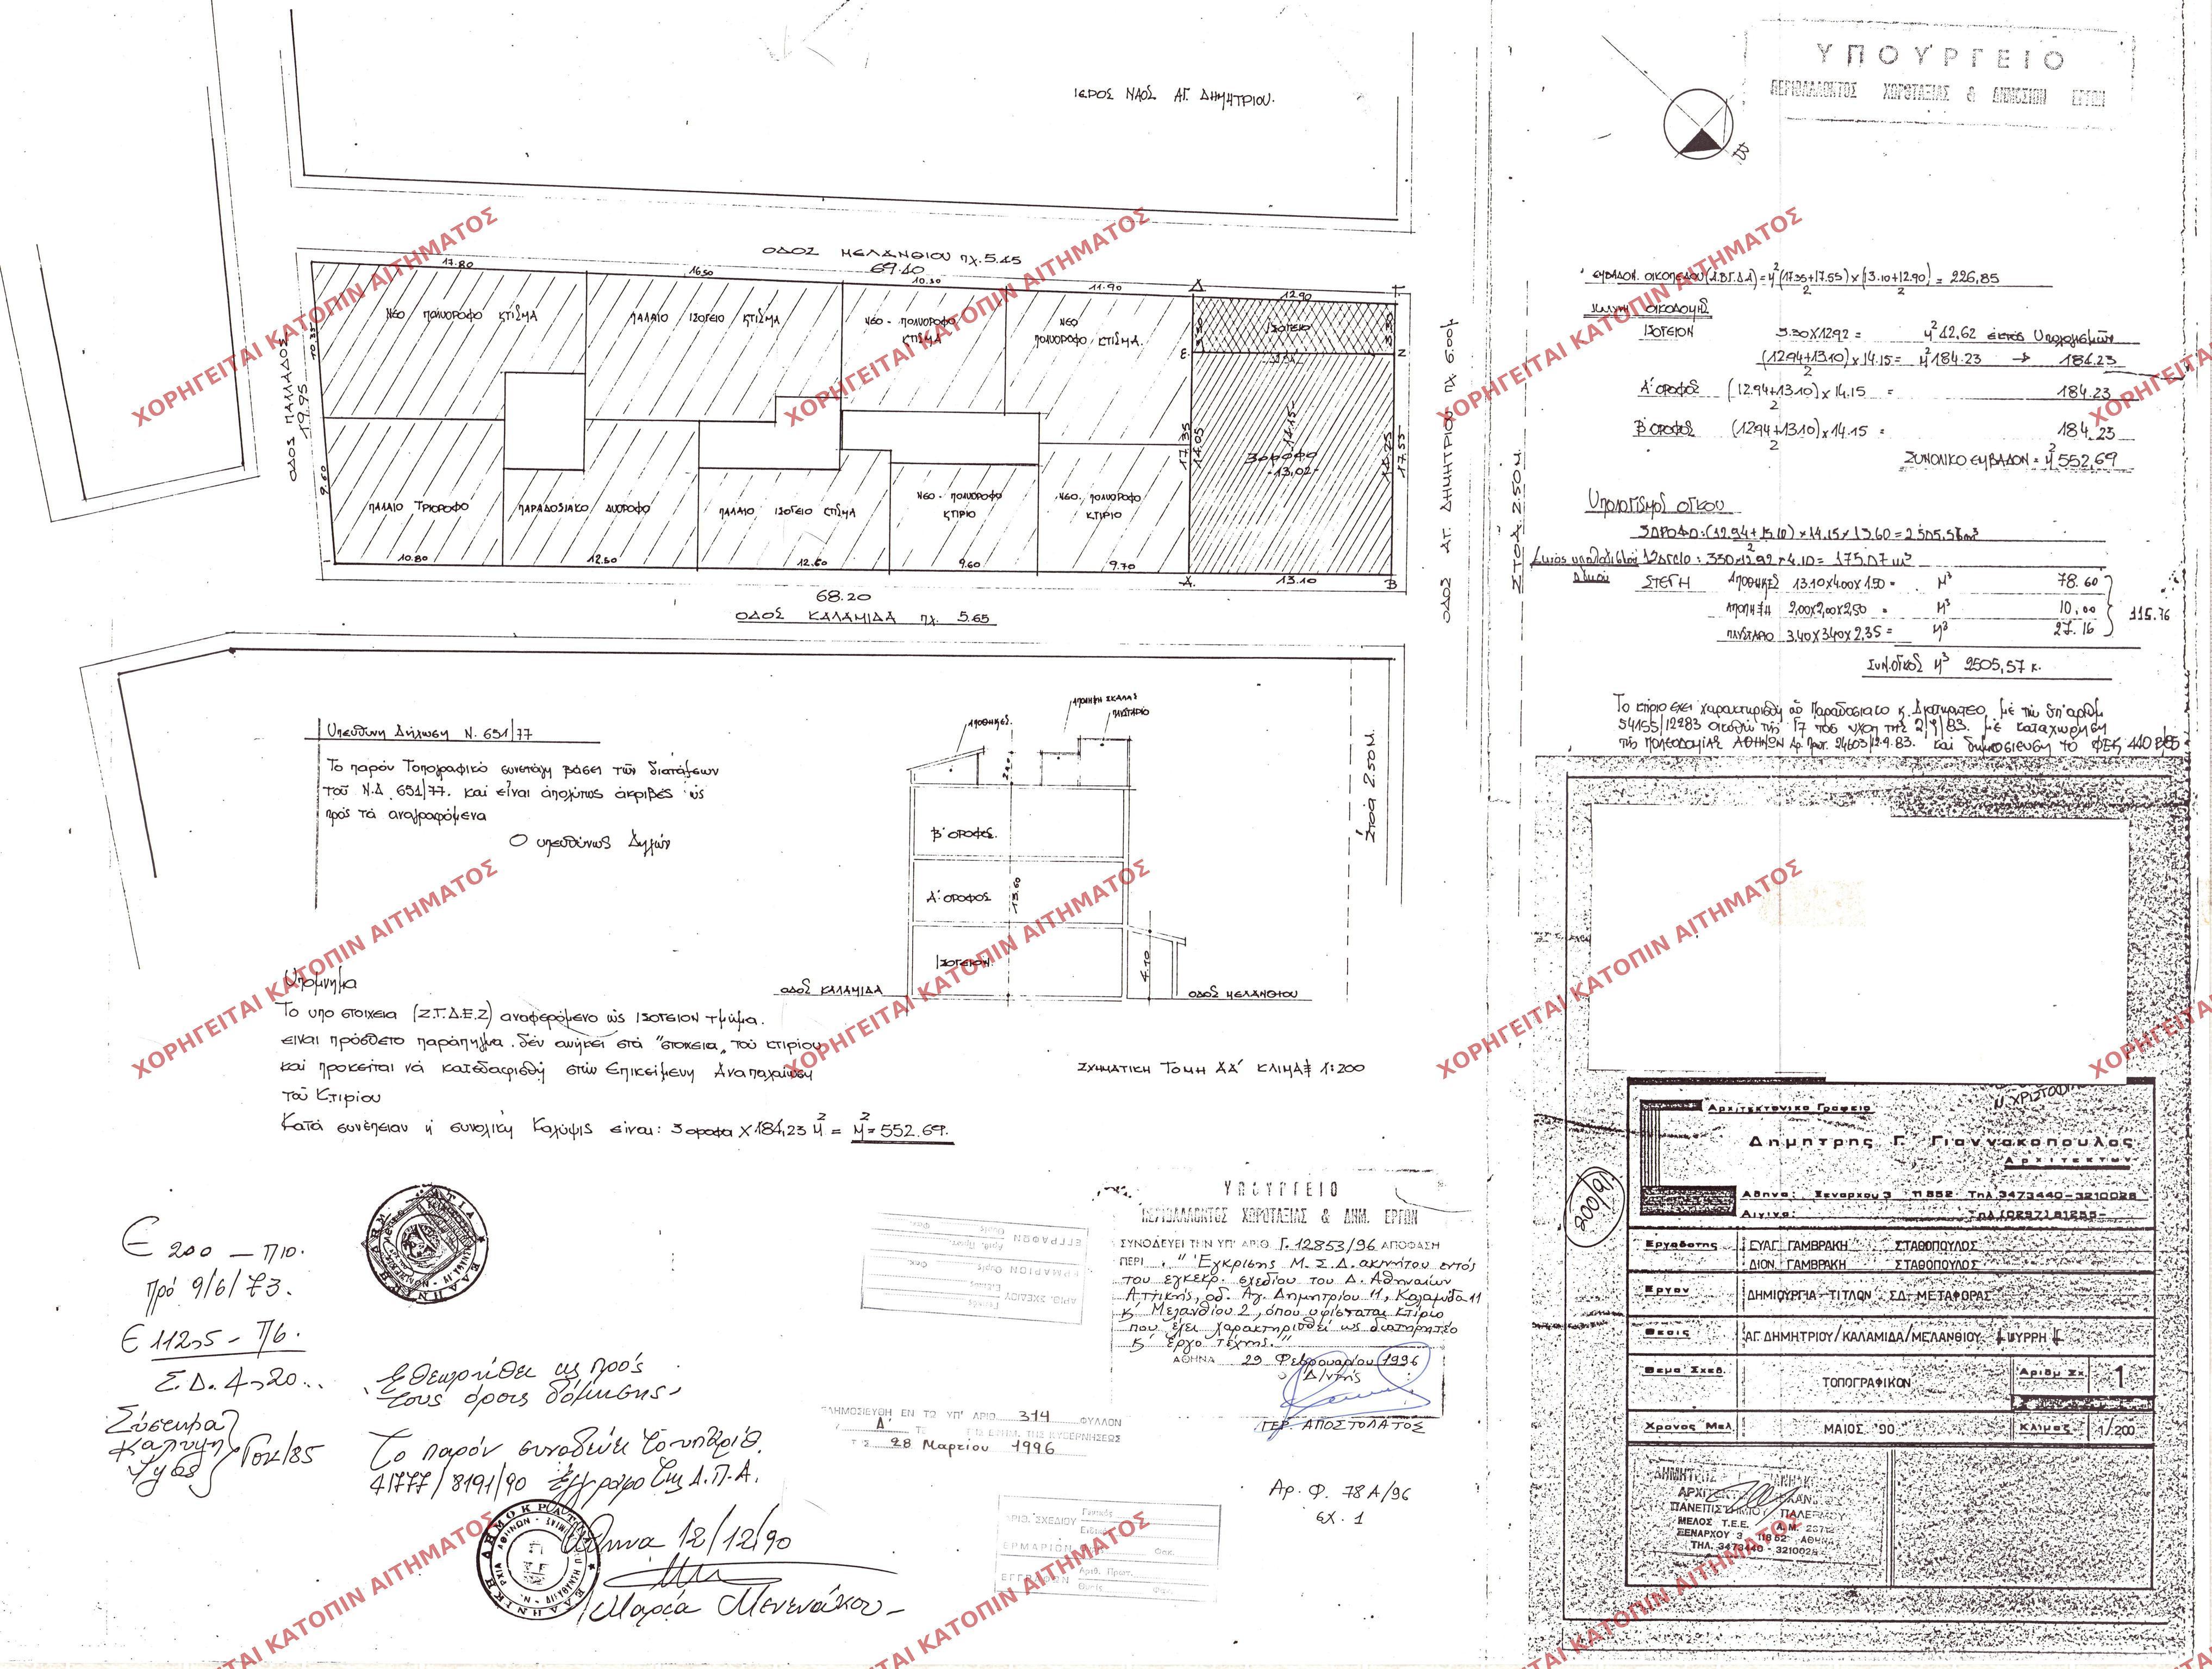 ΙΕΡΟΣ ΝΑΟΣ ΑΓ. ΔΗΜΗΤΡΙΟΥ.
ΟΔΟΣ ΜΕΛΑΝΘΙΟΥ πχ. 5.45
69.40
17.80
16.50
10.30
11.90
Δ
12.90
Γ
ΟΔΟΣ ΠΑΛΛΑΔΟΣ
19.95
10.35
9.60
ΝΕΟ ΠΟΛΥΟΡΟΦΟ ΚΤΙΣΜΑ
ΠΑΛΑΙΟ ΙΣΟΓΕΙΟ ΚΤΙΣΜΑ
ΝΕΟ - ΠΟΛΥΟΡΟΦΟ
ΚΤΙΣΜΑ
ΝΕΟ
ΠΟΛΥΟΡΟΦΟ ΚΤΙΣΜΑ.
ΙΣΟΓΕΙΟ
3.30
3.30
Ε
Ζ
17.35
14.05
-14.15-
3ΟΡΟΦΟ
-13,02-
14.25
17.55
ΠΑΛΑΙΟ ΤΡΙΟΡΟΦΟ
ΠΑΡΑΔΟΣΙΑΚΟ ΔΥΟΡΟΦΟ
ΠΑΛΑΙΟ ΙΣΟΓΕΙΟ ΚΤΙΣΜΑ
ΝΕΟ - ΠΟΛΥΟΡΟΦΟ
ΚΤΙΡΙΟ
ΝΕΟ. ΠΟΛΥΟΡΟΦΟ
ΚΤΙΡΙΟ
10.80
12.50
12.60
9.60
9.70
Α.
13.10
Β
68.20
ΟΔΟΣ ΚΑΛΑΜΙΔΑ πχ. 5.65
ΟΔΟΣ ΑΓ. ΔΗΜΗΤΡΙΟΥ πχ 6.00μ
ΣΤΟΑ 2.50 Μ.
Υπεύθυνη Δήλωση Ν. 651/77
Το παρόν Τοπογραφικό συνετάγη βάσει τῶν διατάξεων
τοῦ Ν.Δ. 651/77. καί εἶναι ἀπολύτως ἀκριβές ὡς
πρός τά αναγραφόμενα
Ο υπεύθυνως Δηλῶν
ΑΠΟΘΗΚΕΣ.
ΑΠΟΛΗΞΗ ΣΚΑΛΑΣ
ΠΛΥΣΤΑΡΙΟ
Β' ΟΡΟΦΟΣ.
Α' ΟΡΟΦΟΣ
13.60
ΙΣΟΓΕΙΟΝ.
4.10
ΟΔΟΣ ΚΑΛΑΜΙΔΑ
ΟΔΟΣ ΜΕΛΑΝΘΙΟΥ
Στοά 2.50 Μ.
ΣΧΗΜΑΤΙΚΗ ΤΟΜΗ ΑΑ' ΚΛΙΜΑΞ 1:200
Υπόμνημα
Το υπο στοιχεια (Ζ.Γ.Δ.Ε.Ζ) αναφερόμενο ὡς ΙΣΟΓΕΙΟΝ τμῆμα.
ειναι πρόσθετο παράπηγμα. δέν ανήκει στά "στοιχεια„ τοῦ κτιρίου
καί προκειται νά κατεδαφισθή στήν Επικείμενη Αναπαλαίωση
τοῦ Κτιρίου
Κατά συνέπειαν ἡ συνολική Καλυψις είναι: 3 οροφα Χ 184,23 Μ² = Μ² = 552.69.
Ε 200 - Π10.
Πρό 9/6/73.
Ε 112,5 - Π6.
Σ.Δ. 4,20..
Σύστημα
Καλυψη
Υψος
Γοκ/85
Εθεωρήθει ως πρός
τους όρους δόμησης
Το παρόν συνοδεύει το υπ'αριθ.
41777/8191/90 έγγραφο της Δ.Π.Α.
Αθηνα 12/12/90
Μαρία
ΥΠΟΥΡΓΕΙΟ
ΠΕΡΙΒΑΛΛΟΝΤΟΣ ΧΩΡΟΤΑΞΙΑΣ & ΔΗΜ. ΕΡΓΩΝ
ΣΥΝΟΔΕΥΕΙ ΤΗΝ ΥΠ' ΑΡΙΘ. Γ. 12853/96 ΑΠΟΦΑΣΗ
ΠΕΡΙ „ Έγκρισης Μ.Σ.Δ. ακινήτου εντός
του εγκεκρ. σχεδίου του Δ. Αθηναίων
Αττικής, οδ. Αγ. Δημητρίου 11, Καλαμίδα 11
& Μελανθίου 2, όπου υφίσταται κτίριο
που έχει χαρακτηρισθεί ως διατηρητέο
& έργο τέχνης."
ΑΘΗΝΑ 29 Φεβρουαρίου 1996
Ο Δ/ντής
ΓΕΡ. ΑΠΟΣΤΟΛΑΤΟΣ
ΔΗΜΟΣΙΕΥΘΗ ΕΝ ΤΩ ΥΠ' ΑΡΙΘ. 314 ΦΥΛΛΟΝ
Δ' ΤΕ ΤΗΣ ΕΦΗΜ. ΤΗΣ ΚΥΒΕΡΝΗΣΕΩΣ
ΤΗΣ 28 Μαρτίου 1996
Αρ. Φ. 78Α/96
ΕΧ. 1
ΑΡΙΘ. ΣΧΕΔΙΟΥ Γενικός
Ειδικός
ΕΡΜΑΡΙΟΝ
Φακ.
ΕΓΓΡΑΦΩΝ Αριθ. Πρωτ.
Θυρίς Φακ.
ΥΠΟΥΡΓΕΙΟ
ΠΕΡΙΒΑΛΛΟΝΤΟΣ ΧΩΡΟΤΑΞΙΑΣ & ΔΗΜΟΣΙΩΝ ΕΡΓΩΝ
Β
ΕΜΒΑΔΟΝ. ΟΙΚΟΠΕΔΟΥ (Α.Β.Γ.Δ.Α) = Μ² (17.35+17.55)/2 x (13.10+12.90)/2 = 226,85
ΚΑΛΥΨΗ ΟΙΚΟΔΟΜΗΣ
ΙΣΟΓΕΙΟΝ 3.30 Χ 12.92 = Μ² 42,62 εκτός Υπολογισμῶν
(12.94+13.10)/2 x 14.15 = Μ² 184.23 → 184.23
Α' ΟΡΟΦΟΣ (12.94+13.10)/2 x 14.15 = 184.23
Β' ΟΡΟΦΟΣ (12.94+13.10)/2 x 14.15 = 184.23
ΣΥΝΟΛΙΚΟ ΕΜΒΑΔΟΝ = Μ² 552,69
Υπολογισμος ογκου
3ΟΡΟΦΟ: (12.94+13.10)/2 x 14.15 x 13.60 = 2505,57 m³
Εκτος υπολογισμου ογκου Ισόγειο: 3.30x12.92x4.10= 175.07 m³
ΣΤΕΓΗ ΑΠΟΘΗΚΕΣ 13.10x4.00x1.50 = Μ³ 78.60
ΑΠΟΛΗΞΗ 2,00x2,00x2,50 = Μ³ 10,00
ΠΛΥΣΤΑΡΙΟ 3,40x3,40x2,35 = Μ³ 27.16
115.76
ΣΥΝ. ΟΓΚΟΣ Μ³ 2505,57 κ.
Το κτίριο εχει χαρακτηρισθή ὡς Παραδοσιακο κ. Διατηρητεο μέ την ὑπ' αριθμ
54155/12283 της 2/9/83. μέ καταχωρηση
της Πολεοδομίας ΑΘΗΝΩΝ Αρ. Πρωτ. 24603/12.9.83. και δημοσιευση το ΦΕΚ 440 Β/85
Αρχιτεκτονικο Γραφειο
Δημητρης Γ. Γιαννακοπουλος
Αρχιτεκτων
Αθηνα: Ξεναρχου 3 11852 Τηλ. 3473440-3210028
Αιγινα: Τηλ.(0297) 61255-
200/91
Εργοδοτης ΕΥΑΓ. ΓΑΜΒΡΑΚΗ ΣΤΑΘΟΠΟΥΛΟΣ
ΔΙΟΝ. ΓΑΜΒΡΑΚΗ ΣΤΑΘΟΠΟΥΛΟΣ
Εργον ΔΗΜΙΟΥΡΓΙΑ ΤΙΤΛΩΝ ΣΔ ΜΕΤΑΦΟΡΑΣ
Θεσις ΑΓ. ΔΗΜΗΤΡΙΟΥ/ΚΑΛΑΜΙΔΑ/ΜΕΛΑΝΘΙΟΥ ΨΥΡΡΗ
Θεμα Σχεδ. ΤΟΠΟΓΡΑΦΙΚΟΝ
Αριθμ Σχ. 1
Χρονος Μελ. ΜΑΙΟΣ '90
Κλιμαξ 1/200
ΠΑΝΕΠΙΣΤΗΜΙΟΥ ΠΑΛΕΡΜΟΥ
ΜΕΛΟΣ Τ.Ε.Ε.
ΞΕΝΑΡΧΟΥ 3 11852 ΑΘΗΝΑ
ΤΗΛ. 3473440 - 3210028
ΧΟΡΗΓΕΙΤΑΙ ΚΑΤΟΠΙΝ ΑΙΤΗΜΑΤΟΣ